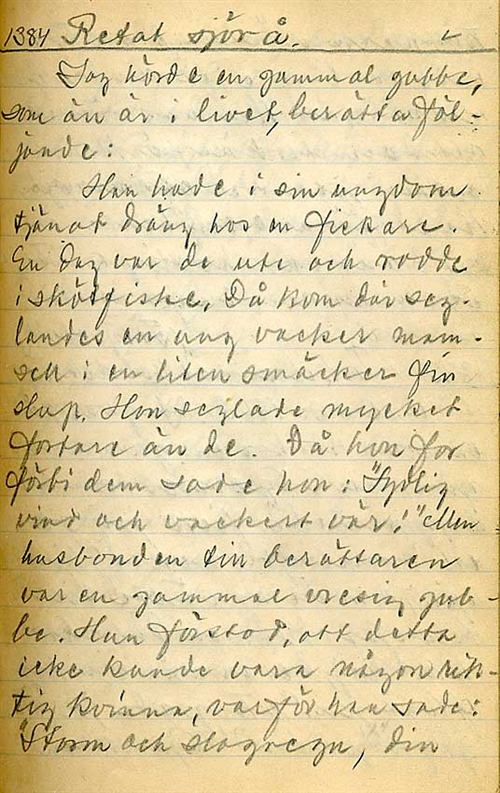 1384 Retat sjörå.
Jag hörde en gammal gubbe,
som än är i livet, berätta föl-
jande:
Han hade i sin ungdom
tjänat dräng hos en fiskare.
En dag var de ute och rodde
i skötfiske. Då kom där seg-
landes en ung vacker mam-
sell i en liten smäcker fin
slup. Hon seglade mycket
fortare än de. Då hon for
förbi dem sade hon: "Sydlig
vind och vackert vär!" Men
husbonden till berättaren
var en gammal vresig gub-
be. Han förstod, att detta
icke kunde vara någon rik-
tig kvinna, varför han sade:
"Storm och slagregn, din